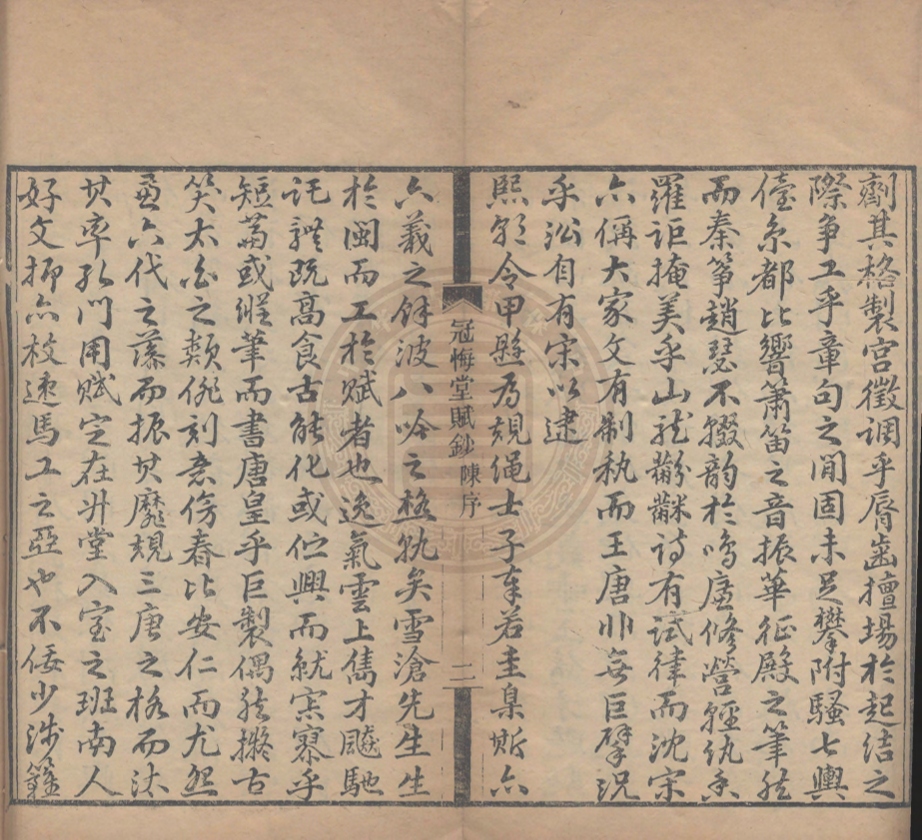 劑其格製宮徵調乎脣齒擅場於起結之
際爭工乎章句之間固未足攀附騷七輿
儓京都比響簫笛之音振華征殿之筆然
而秦箏趙瑟不輟韵於鳴廬修營輕紈
羅詎掩美乎山龍黼黻詩有試律而沈宋
亦稱大家文有制執而王唐非無巨擘況
乎沿自有宋以逮
熙朝令甲縣為規繩士子奉若圭臬斯亦
冠悔堂賦鈔 陳序 二
六義之餘波八吟之極執矣雪滄先生生
於閩而工於賦者也逸氣雲上雋才飈馳
託體既高食古能化或佇興而就寀寮乎
短篇或縱筆而書唐皇乎巨製偶然擬古
笑太白之類俳刻意傷春比安仁而尤怨
六代之藻而振其靡規三唐之格而汰
其率孔門用賦定在升堂入室之班南人
好文抑亦枚速馬工之亞也不佞少涉籓